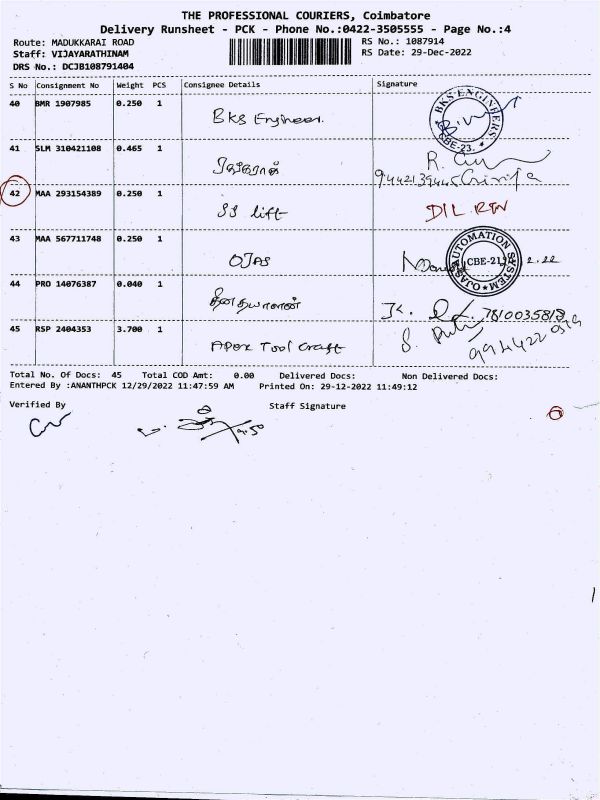 THE PROFESSIONAL COURIERS, Coimbatore
Delivery Runsheet - PCK - Phone No.:0422-3505555 - Page No.:4
Route: MADUKKARAI ROAD RS No.: 1087914
Staff: VIJAYARATHINAM RS Date: 29-Dec-2022
DRS No.: DCJB108791404
S No Consignment No Weight PCS Consignee Details Signature
40 BMR 1907985 0.250 1 BKS Engineer. BKS ENGINEERS CBE-23.
41 SLM 310421108 0.465 1
42 MAA 293154389 0.250 1 SS lift DIL RTN
43 MAA 567711748 0.250 1 OJAS OJAS AUTOMATION SYSTEM CBE-21
44 PRO 14076387 0.040 1 தீனதயாளன் 7810035818
45 RSP 2404353 3.700 1 Apex Tool Craft
Total No. Of Docs: 45 Total COD Amt: 0.00 Delivered Docs: Non Delivered Docs:
Entered By :ANANTHPCK 12/29/2022 11:47:59 AM Printed On: 29-12-2022 11:49:12
Verified By Staff Signature